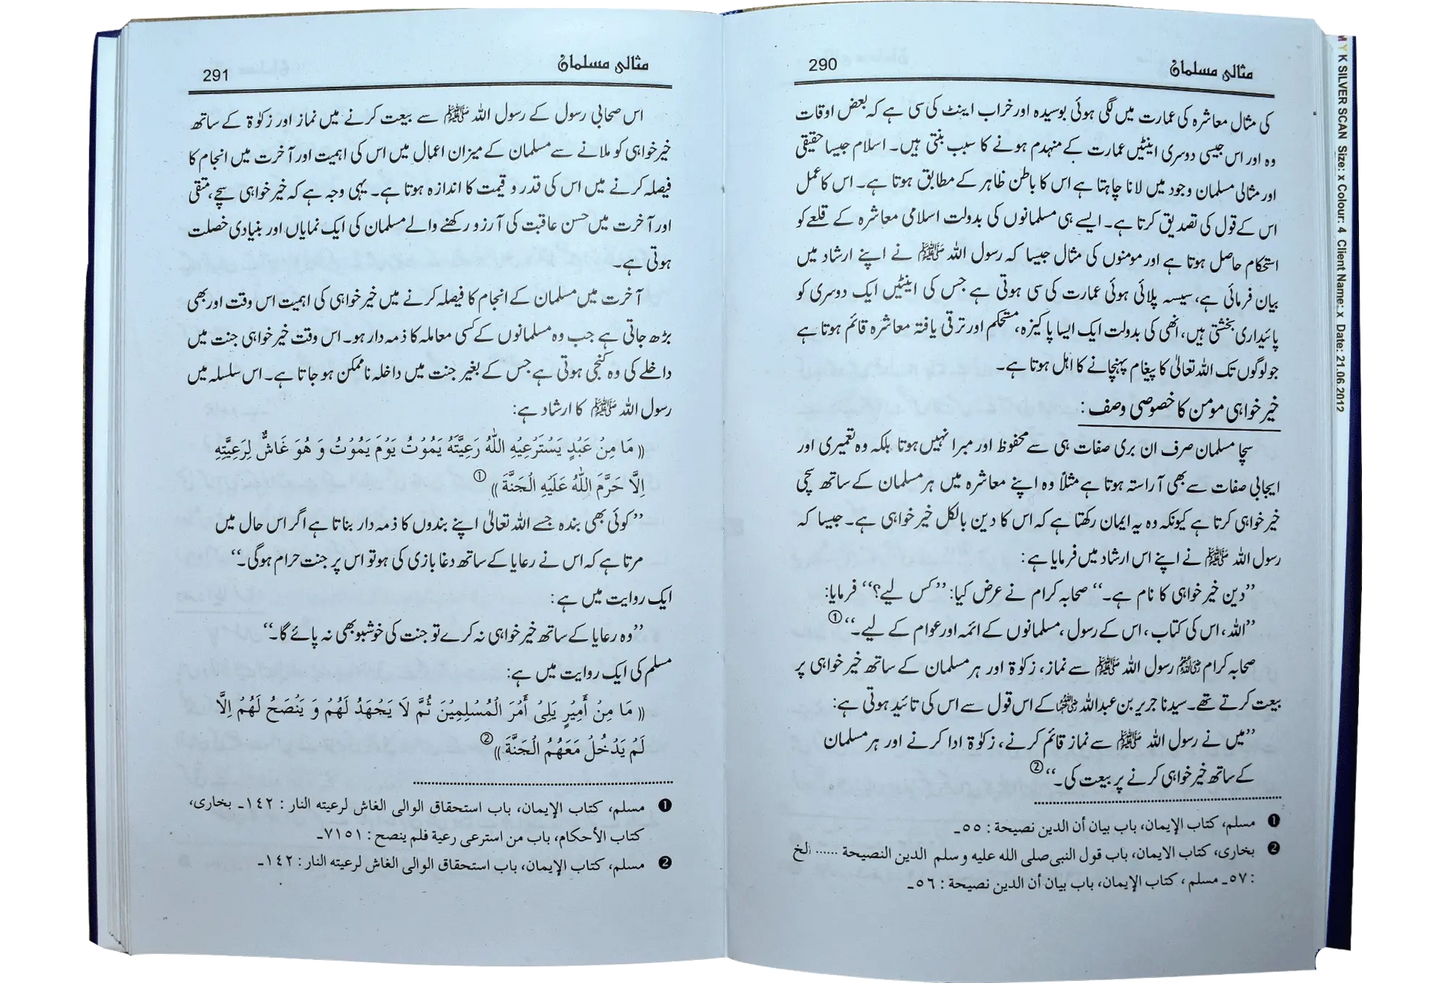 290 مثالی مسلمان
کی مثال معاشرہ کی عمارت میں لگی ہوئی بوسیدہ اور خراب اینٹ کی سی ہے کہ بعض اوقات
وہ اور اس جیسی دوسری اینٹیں عمارت کے منہدم ہونے کا سبب بنتی ہیں۔ اسلام جیسا حقیقی
اور مثالی مسلمان وجود میں لانا چاہتا ہے اس کا باطن ظاہر کے مطابق ہوتا ہے۔ اس کا عمل
اس کے قول کی تصدیق کرتا ہے۔ ایسے ہی مسلمانوں کی بدولت اسلامی معاشرہ کے قلعے کو
استحکام حاصل ہوتا ہے اور مومنوں کی مثال جیسا کہ رسول اللہ ﷺ نے اپنے ارشاد میں
بیان فرمائی ہے، سیسہ پلائی ہوئی عمارت کی سی ہوتی ہے جس کی اینٹیں ایک دوسری کو
پائیداری بخشتی ہیں، انھی کی بدولت ایک ایسا پاکیزہ، مستحکم اور ترقی یافتہ معاشرہ قائم ہوتا ہے
جو لوگوں تک اللہ تعالیٰ کا پیغام پہنچانے کا اہل ہوتا ہے۔
خیر خواہی مومن کا خصوصی وصف :
سچا مسلمان صرف ان بری صفات ہی سے محفوظ اور مبرا نہیں ہوتا بلکہ وہ تعمیری اور
ایجابی صفات سے بھی آراستہ ہوتا ہے مثلاً وہ اپنے معاشرہ میں ہر مسلمان کے ساتھ سچی
خیر خواہی کرتا ہے کیونکہ وہ یہ ایمان رکھتا ہے کہ اس کا دین بالکل خیر خواہی ہے۔ جیسا کہ
رسول اللہ ﷺ نے اپنے اس ارشاد میں فرمایا ہے :
’’دین خیر خواہی کا نام ہے۔‘‘ صحابہ کرام نے عرض کیا: ’’کس لیے؟‘‘ فرمایا:
’’اللہ، اس کی کتاب، اس کے رسول، مسلمانوں کے ائمہ اور عوام کے لیے۔‘‘①
صحابہ کرام رضی اللہ عنہم رسول اللہ ﷺ سے نماز، زکوٰۃ اور ہر مسلمان کے ساتھ خیر خواہی پر
بیعت کرتے تھے۔ سیدنا جریر بن عبداللہ رضی اللہ عنہ کے اس قول سے اس کی تائید ہوتی ہے:
’’میں نے رسول اللہ ﷺ سے نماز قائم کرنے، زکوٰۃ ادا کرنے اور ہر مسلمان
کے ساتھ خیر خواہی کرنے پر بیعت کی۔‘‘②
❶ مسلم، کتاب الإیمان، باب بیان أن الدین نصیحة : ٥٥۔
❷ بخاری، کتاب الایمان، باب قول النبی صلی الله علیه وسلم الدین النصیحة ...... الخ
: ٥٧۔ مسلم ، کتاب الإیمان، باب بیان أن الدین نصیحة : ٥٦۔
291 مثالی مسلمان
اس صحابی رسول کے رسول اللہ ﷺ سے بیعت کرنے میں نماز اور زکوٰۃ کے ساتھ
خیر خواہی کو ملانے سے مسلمان کے میزان اعمال میں اس کی اہمیت اور آخرت میں انجام کا
فیصلہ کرنے میں اس کی قدر و قیمت کا اندازہ ہوتا ہے۔ یہی وجہ ہے کہ خیر خواہی سچے، متقی
اور آخرت میں حسن عاقبت کی آرزو رکھنے والے مسلمان کی ایک نمایاں اور بنیادی خصلت
ہوتی ہے۔
آخرت میں مسلمان کے انجام کا فیصلہ کرنے میں خیر خواہی کی اہمیت اس وقت اور بھی
بڑھ جاتی ہے جب وہ مسلمانوں کے کسی معاملہ کا ذمہ دار ہو۔ اس وقت خیر خواہی جنت میں
داخلے کی وہ کنجی ہوتی ہے جس کے بغیر جنت میں داخلہ ناممکن ہو جاتا ہے۔ اس سلسلہ میں
رسول اللہ ﷺ کا ارشاد ہے:
(( مَا مِنْ عَبْدٍ يَسْتَرْعِيْهِ اللّٰهُ رَعِيَّتَهُ يَمُوْتُ يَوْمَ يَمُوْتُ وَ هُوَ غَاشٌّ لِرَعِيَّتِهِ
اِلَّا حَرَّمَ اللّٰهُ عَلَيْهِ الْجَنَّةَ ))①
’’کوئی بھی بندہ جسے اللہ تعالیٰ اپنے بندوں کا ذمہ دار بناتا ہے اگر اس حال میں
مرتا ہے کہ اس نے رعایا کے ساتھ دغا بازی کی ہو تو اس پر جنت حرام ہوگی۔‘‘
ایک روایت میں ہے :
’’وہ رعایا کے ساتھ خیر خواہی نہ کرے تو جنت کی خوشبو بھی نہ پائے گا۔‘‘
مسلم کی ایک روایت میں ہے:
(( مَا مِنْ أَمِيْرٍ يَلِيْ أَمْرَ الْمُسْلِمِيْنَ ثُمَّ لَا يَجْهَدُ لَهُمْ وَ يَنْصَحُ لَهُمْ اِلَّا
لَمْ يَدْخُلْ مَعَهُمُ الْجَنَّةَ ))②
❶ مسلم، کتاب الإیمان، باب استحقاق الوالی الغاش لرعیته النار : ١٤٢۔ بخاری،
کتاب الأحکام، باب من استرعی رعیة فلم ینصح : ٧١٥١۔
❷ مسلم، کتاب الإیمان، باب استحقاق الوالی الغاش لرعیته النار : ١٤٢۔
M Y K SILVER SCAN Size: x Colour: 4 Client Name: x Date: 21.06.2012